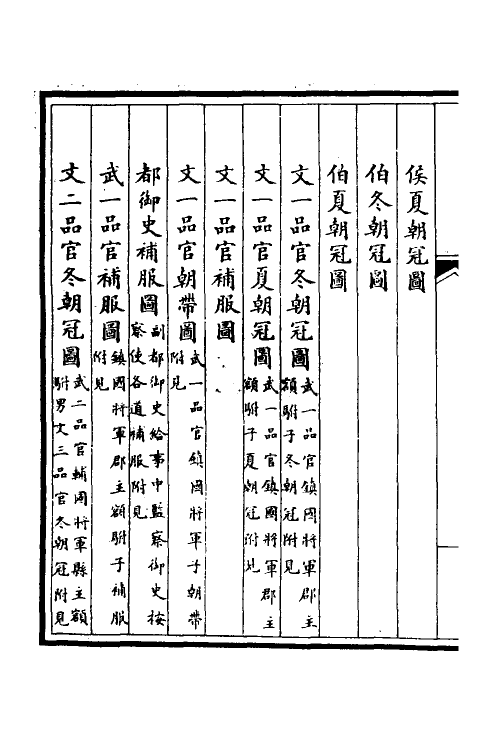 侯夏朝冠圖
伯冬朝冠圖
伯夏朝冠圖
文一品官冬朝冠圖武一品官鎮國將軍郡主額駙子冬朝冠附見
文一品官夏朝冠圖武一品官鎮國將軍郡主額駙子夏朝冠附見
文一品官補服圖
文一品官朝帶圖武一品官鎮國將軍子朝帶附見
都御史補服圖副都御史給事中監察御史按察使各道補服附見
武一品官補服圖鎮國將軍郡主額駙子補服附見
文二品官冬朝冠圖武二品官輔國將軍縣主額駙男文三品官冬朝冠附見